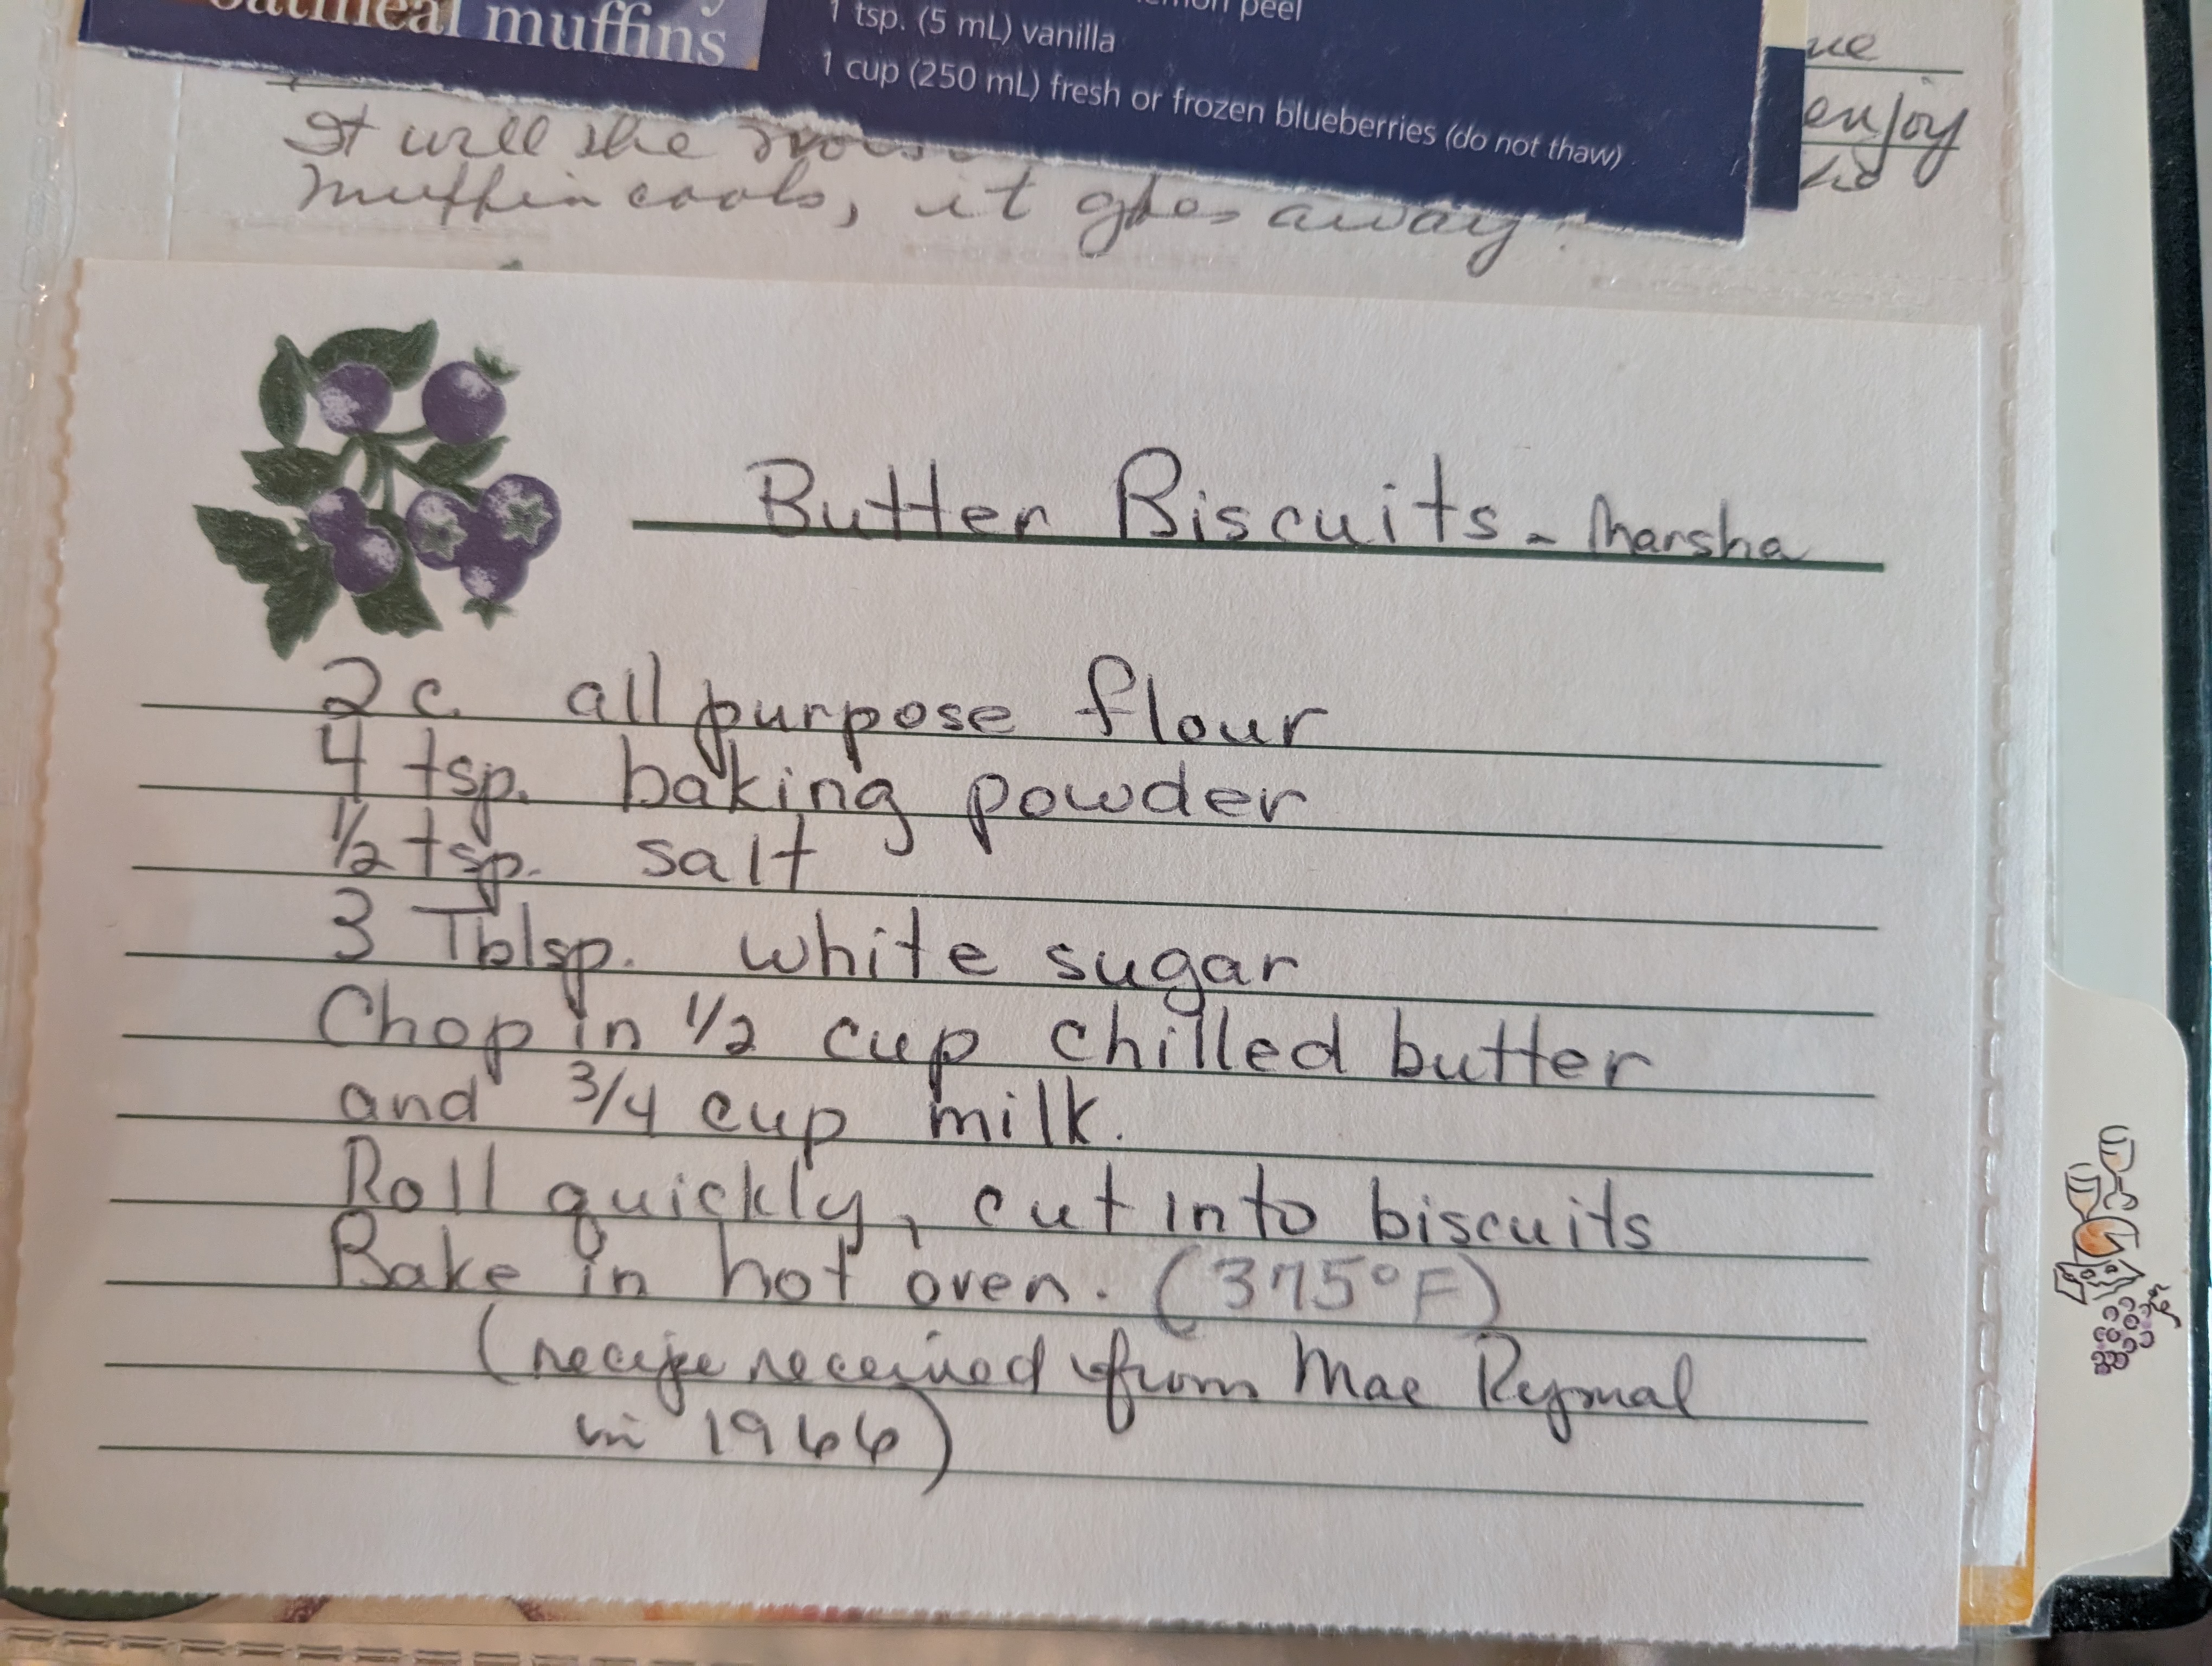 oatmeal muffins
peel
1 tsp. (5 mL) vanilla
1 cup (250 mL) fresh or frozen blueberries (do not thaw)
enjoy
It will she
muffin cools, it goes away!
Butter Biscuits - Marsha
2 c. all purpose flour
4 tsp. baking powder
1/2 tsp. salt
3 Tblsp. white sugar
Chop in 1/2 cup chilled butter
and 3/4 cup milk.
Roll quickly, cut into biscuits
Bake in hot oven. (375°F)
(recipe received from Mae Rymal
in 1966)